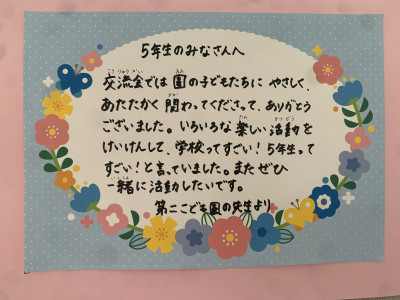 5年生のみなさんへ
交流会では園の子どもたちにやさしく、
あたたかく関わってくださって、ありがとう
ございました。いろいろな楽しい活動を
けいけんして、学校ってすごい!5年生って
すごい!と言っていました。またぜひ
一緒に活動したいです。
第二こども園の先生より